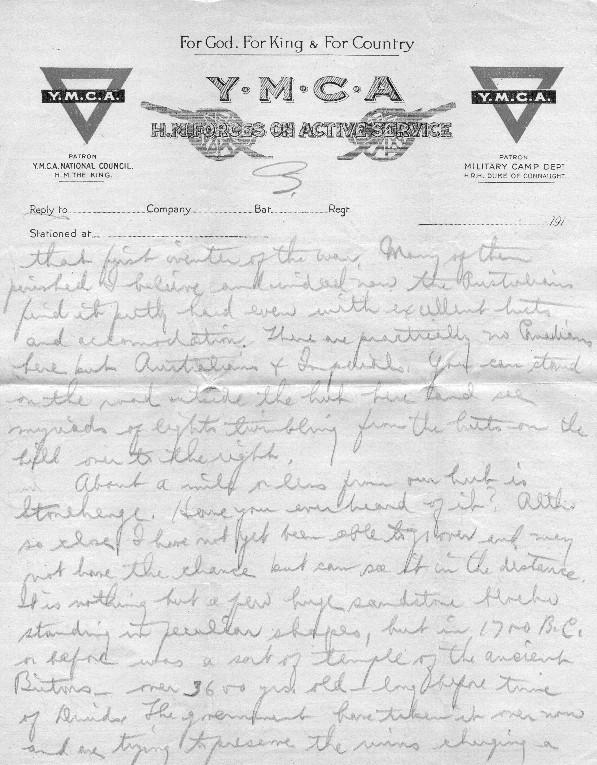 For God. For King & For Country
Y.M.C.A
H.M. FORCES ON ACTIVE SERVICE
Y.M.C.A.
Y.M.C.A.
PATRON
Y.M.C.A. NATIONAL COUNCIL.
H.M. THE KING.
PATRON
MILITARY CAMP DEPT
H.R.H. DUKE OF CONNAUGHT.
3.
Reply to Company Bat. Regt.
191
Stationed at
that first winter of the war. Many of them
perished I believe and indeed now the Australians
find it pretty hard even with excellent huts
and accomodation. There are practically no Canadians
here but Australians & Imperials. You can stand
on the road outside the hut here and see
myriads of lights twinkling from the huts on the
hill over to the right.
About a mile or less from our hut is
Stonehenge. Have you ever heard of it? Altho
so close I have not yet been able to go over and may
not have the chance but can see it in the distance.
It is nothing but a few huge sandstone blocks
standing in peculiar shapes, but in 1700 B.C.
or before was a sort of temple of the ancient
Britons - over 3600 yrs old - long before time
of Druids. The government have taken it over now
and are trying to preserve the ruins charging a